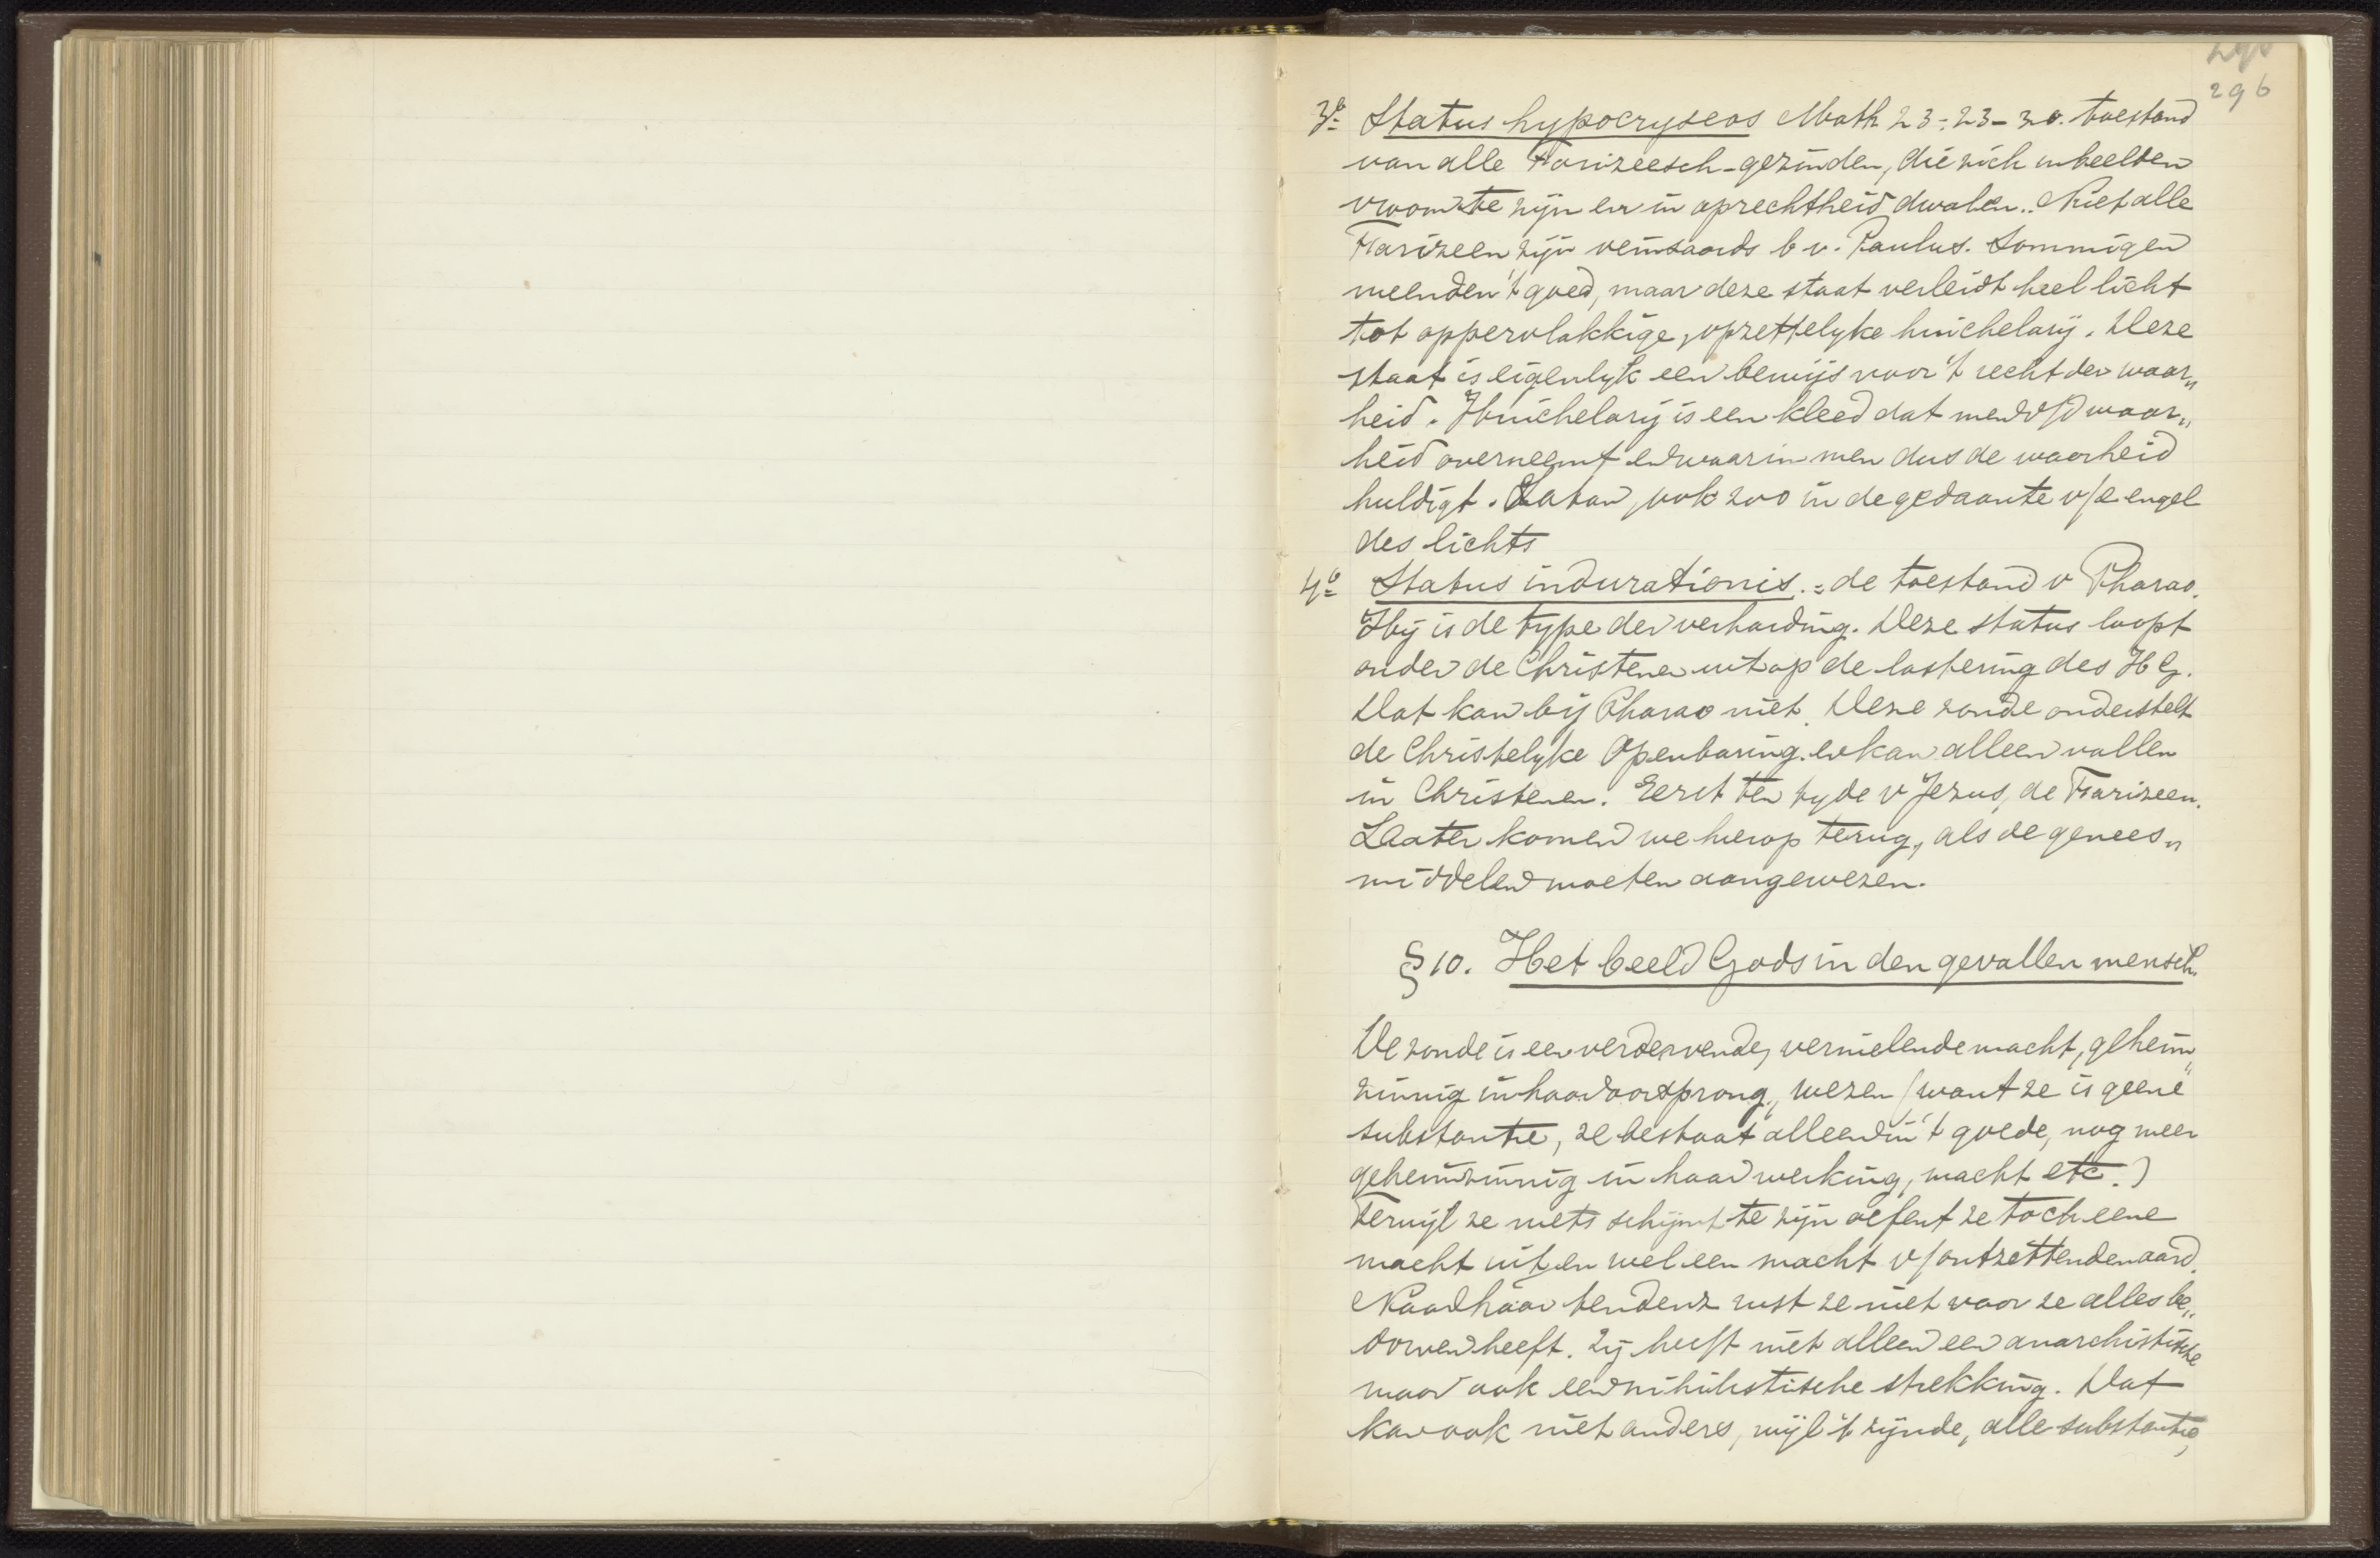 296
3º Status hypocryseos Math 23:23-30. toestand
van alle Farizeesch-gezinden, die zich inbeelden
vroom te zijn en in oprechtheid dwalen. Niet alle
Farizeen zijn veinsaards b v. Paulus. Sommigen
meenden 't goed, maar deze staat verleidt heel licht
tot oppervlakkige, opzettelyke huichelarij. Deze
staat is eigenlyk een bewijs voor 't recht der waar„
heid. Huichelarij is een kleed dat men v/d waar„
heid overneemt en waarin men dus de waarheid
huldigt. Satan, ook zoo in de gedaante v/e engel
des lichts
4º Status indurationis := de toestand v Pharao.
Hij is de type der verharding. Deze status loopt
onder de Christenen uit op de lastering des H G.
Dat kan bij Pharao niet. Deze zonde onderstelt
de Christelyke Openbaring. en kan alleen vallen
in Christenen. Eerst ten tyde v Jezus, de Farizeen.
Laater komen we hierop terug, als de genees„
middelen moeten aangewezen.
§ 10. Het beeld Gods in den gevallen mensch.
De zonde is een verdervende, vernielende macht, geheim„
zinnig in haar oorsprong, wezen (want ze is geene
substantie, ze bestaat alleen in 't goede, nog meer
geheimzinnig in haar werking, macht etc.)
Terwijl ze niets schijnt te zijn oefent ze toch eene
macht uit, en wel een macht v/ ontzettenden aard.
Naar haar tendenz rust ze niet voor ze alles be„
dorven heeft. Zij heeft niet alleen een anarchistische
maar ook een nihilistische strekking. Dat
kan ook niet anders, wijl 't zijnde, alle substantie,